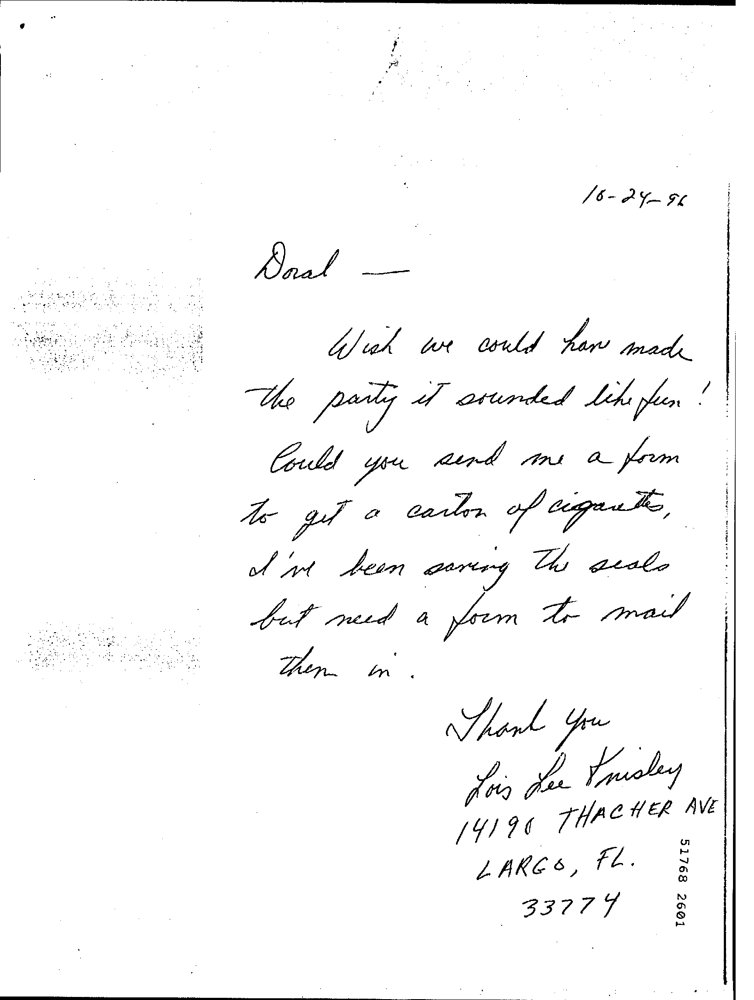 10-24-96
Doral —
Wish we could have made
the party it sounded like fun!
Could you send me a form
to get a carton of cigarettes,
I've been saving the seals
but need a form to mail
them in.
Thank you
Lois Lee Knisley
14190 THACHER AVE
LARGO, FL.
33774
51768 2601